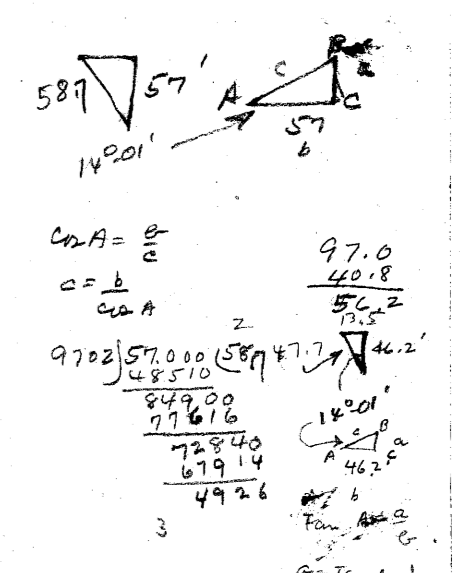 587 57'
14°01'
B
c a
A C
57
b
cos A = b/c
c = b/cos A
97.0
40.8
56.2
13.5
2
9702)57.000(587 47.7 46.2'
48510
84900
77616
72840
67914
4926
14°01'
c B
A a
C
46.2'
b
Tan A = a/b
3